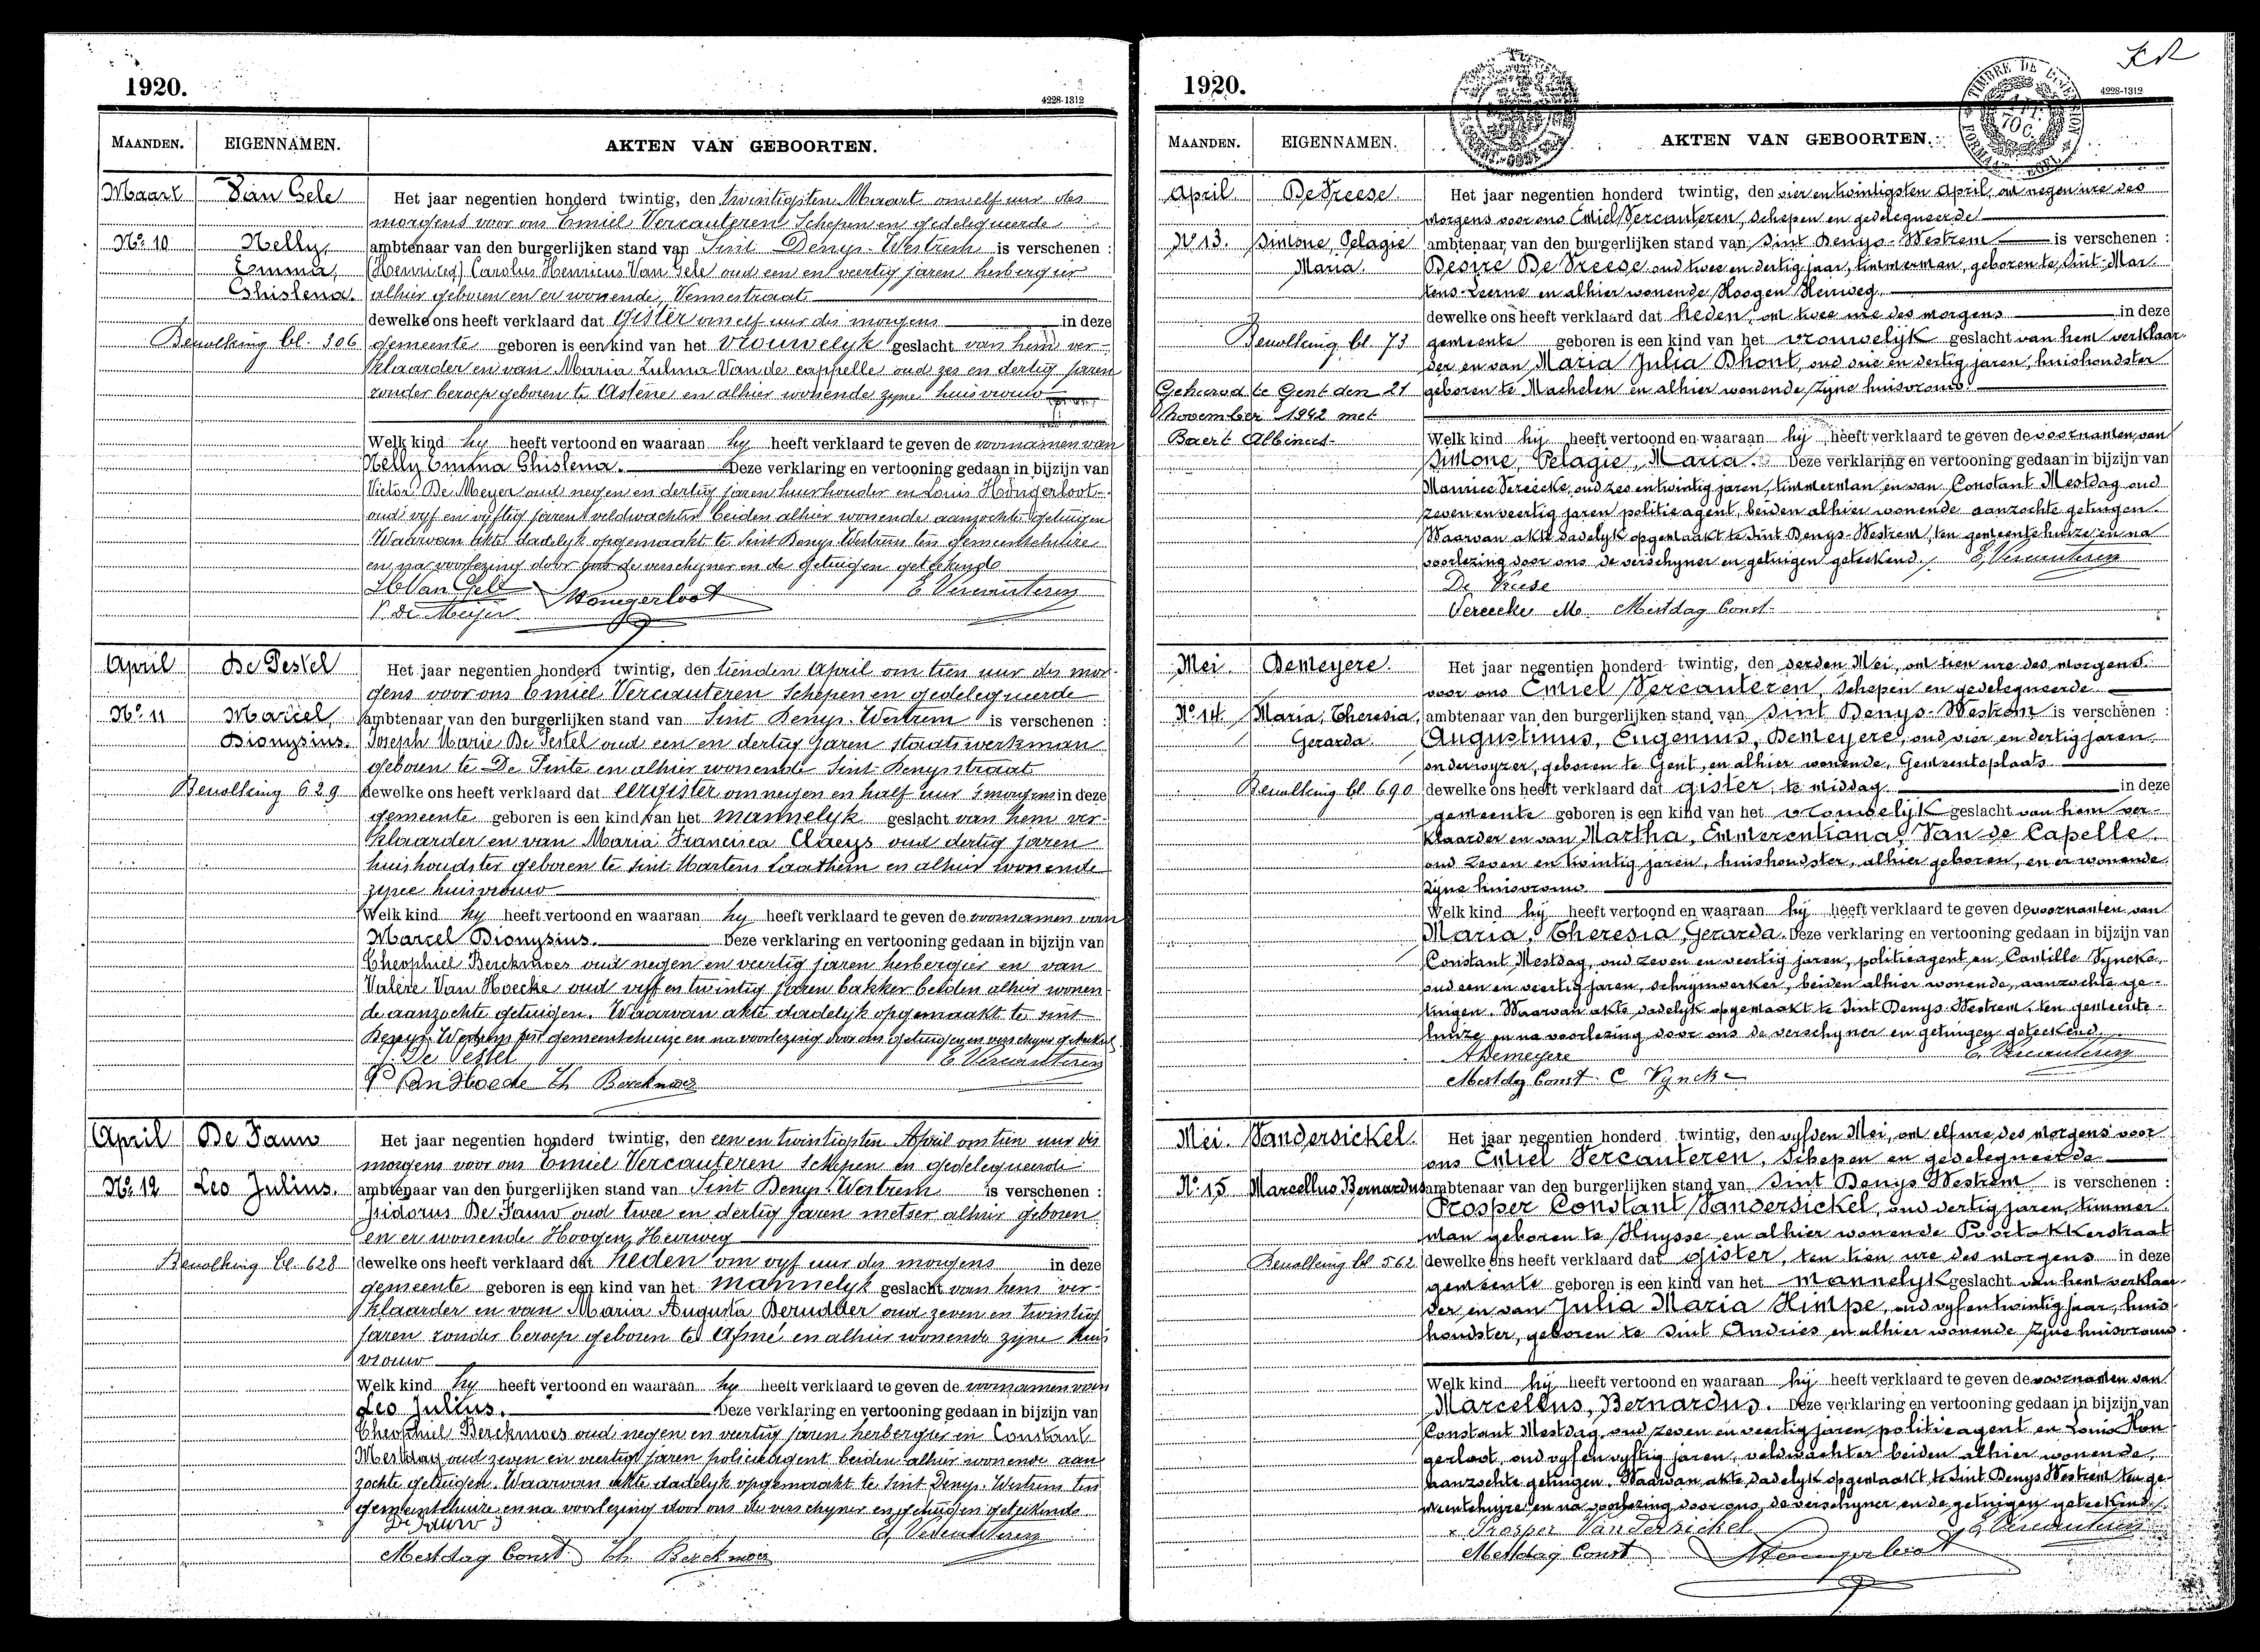 1920.
4228-1312
MAANDEN. EIGENNAMEN. AKTEN VAN GEBOORTEN.
Maart Van Gele Het jaar negentien honderd twintig, den twintigsten Maart om elf uur des
morgens voor ons Emiel Vercauteren Schepen en gedelegueerde
No. 10 Nelly, ambtenaar van den burgerlijken stand van Sint Denys-Westrem is verschenen :
Emma, (Henricus) Carolus Henricus Van Gele oud een en veertig jaren herbergier
Ghislena. alhier geboren en er wonende, Vennestraat
dewelke ons heeft verklaard dat Gister om elf uur des morgens in deze
Bevolking bl. 306 gemeente geboren is een kind van het vrouwelyk geslacht van hem ver-
klaarder en van Maria Zulma Van de cappelle oud zes en dertig jaren
zonder beroep geboren te Astene en alhier wonende zyne huisvrouw
Welk kind hy heeft vertoond en waaraan hy heeft verklaard te geven de voornamen van
Nelly Emma Ghislena. Deze verklaring en vertooning gedaan in bijzijn van
Victor De Meyer oud negen en dertig jaren huurhouder en Louis Hongerloot
oud vyf en vyftig jaren veldwachter beiden alhier wonende aanzochte getuigen
Waarvan akte dadelyk opgemaakt te Sint Denys Westrem ten gemeentehuize
en na voorlezing door ons de verschyner en de getuigen geteekend
Van Gele Hongerloot E. Vercauteren
V. De Meyer
April De Pestel Het jaar negentien honderd twintig, den tienden April om tien uur des mor-
gens voor ons Emiel Vercauteren Schepen en gedelegueerde
No. 11 Marcel, ambtenaar van den burgerlijken stand van Sint Denys-Westrem is verschenen :
Dionysius. Joseph Marie De Pestel oud een en dertig jaren staatswerkman
geboren te De Pinte en alhier wonende Sint-Denysstraat
Bevolking 629 dewelke ons heeft verklaard dat eergister om negen en half uur 's morgens in deze
gemeente geboren is een kind van het mannelyk geslacht van hem ver-
klaarder en van Maria Francisca Claeys oud dertig jaren
huishoudster geboren te Sint Martens Laathem en alhier wonende
zyne huisvrouw
Welk kind hy heeft vertoond en waaraan hy heeft verklaard te geven de voornamen van
Marcel Dionysius. Deze verklaring en vertooning gedaan in bijzijn van
Theophiel Berckmoes oud negen en veertig jaren herbergier en van
Valère Van Hoecke oud vyf en twintig jaren bakker beiden alhier wonen-
de aanzochte getuigen. Waarvan akte dadelyk opgemaakt te Sint
Denys-Westrem ten gemeentehuize en na voorlezing door ons getuigen en verschyner geteekend
De Pestel E. Vercauteren
Van Hoecke Th Berckmoes
April De Pauw Het jaar negentien honderd twintig, den een en twintigsten April om tien uur des
morgens voor ons Emiel Vercauteren Schepen en gedelegueerde
No. 12 Leo Julius. ambtenaar van den burgerlijken stand van Sint Denys-Westrem is verschenen :
Isidorus De Pauw oud twee en dertig jaren metser alhier geboren
en er wonende Hoogen Heirweg
Bevolking bl. 628 dewelke ons heeft verklaard dat heden om vyf uur des morgens in deze
gemeente geboren is een kind van het mannelyk geslacht van hem ver-
klaarder en van Maria Augusta Berudder oud zeven en twintig
jaren zonder beroep geboren te Afsné en alhier wonende zyne huis
vrouw
Welk kind hy heeft vertoond en waaraan hy heeft verklaard te geven de voornamen van
Leo Julius. Deze verklaring en vertooning gedaan in bijzijn van
Theophiel Berckmoes oud negen en veertig jaren herbergier en Constant
Mestdag oud zeven en veertig jaren policieagent beiden alhier wonende aan
zochte getuigen. Waarvan akte dadelyk opgemaakt te Sint Denys-Westrem ten
gemeentehuize en na voorlezing door ons de verschyner en getuigen geteekend.
De Pauw J E. Vercauteren
Mestdag Const Th. Berckmoes
1920.
4228-1312
MAANDEN. EIGENNAMEN. AKTEN VAN GEBOORTEN.
April De Vreese. Het jaar negentien honderd twintig, den vier en twintigsten April, om negen ure des
morgens voor ons Emiel Vercauteren, Schepen en gedelegueerde
No 13. Simone, Pelagie ambtenaar van den burgerlijken stand van Sint Denys-Westrem is verschenen :
Maria. Desiré De Vreese oud twee en dertig jaar, timmerman, geboren te Sint-Mar-
tens-Leerne en alhier wonende Hoogen Heirweg.
dewelke ons heeft verklaard dat heden, om twee ure des morgens in deze
Bevolking bl. 73 gemeente geboren is een kind van het vrouwelyk geslacht van hem verklaar-
der en van Maria Julia Dhont, oud drie en dertig jaren, huishoudster
Gehuwd te Gent den 21 geboren te Machelen en alhier wonende zyne huisvrouw.
November 1942 met
Baert Albinus. Welk kind hij heeft vertoond en waaraan hij heeft verklaard te geven de voornamen van
Simone, Pelagie, Maria. Deze verklaring en vertooning gedaan in bijzijn van
Maurice Vereecke, oud zes en twintig jaren, timmerman en van Constant Mestdag oud
zeven en veertig jaren politieagent, beiden alhier wonende aanzochte getuigen.
Waarvan akte dadelyk opgemaakt te Sint Denys-Westrem, ten gemeentehuize en na
voorlezing door ons de verschyner en getuigen geteekend. E. Vercauteren
De Vreese
Vereecke M. Mestdag Const.
Mei. Demeyere. Het jaar negentien honderd twintig, den derden Mei, om tien ure des morgens
voor ons Emiel Vercauteren, Schepen en gedelegueerde
No 14. Maria, Theresia, ambtenaar van den burgerlijken stand van Sint Denys-Westrem is verschenen :
Gerarda. Augustinus, Eugenius, Demeyere, oud vier en dertig jaren
onderwyzer, geboren te Gent, en alhier wonende, Gemeenteplaats
Bevolking bl. 690 dewelke ons heeft verklaard dat gister, te middag in deze
gemeente geboren is een kind van het vrouwelyk geslacht van hem ver-
klaarder en van Martha, Emmerentiana, Van de Capelle,
oud zeven en twintig jaren, huishoudster, alhier geboren, en er wonende
zijne huisvrouw
Welk kind hij heeft vertoond en waaraan hij heeft verklaard te geven de voornamen van
Maria, Theresia, Gerarda. Deze verklaring en vertooning gedaan in bijzijn van
Constant Mestdag, oud zeven en veertig jaren, politieagent en Camille Vyncke,
oud een en veertig jaren, schrijnwerker, beiden alhier wonende, aanzochte ge-
tuigen. Waarvan akte dadelyk opgemaakt te Sint Denys-Westrem, ten gemeente-
huize en na voorlezing door ons de verschyner en getuigen geteekend.
A Demeyere E. Vercauteren
Mestdag Const. C Vyncke
Mei. Vandersickel. Het jaar negentien honderd twintig, den vyfden Mei, om elf ure des morgens voor
ons Emiel Vercauteren, Schepen en gedelegueerde
No 15 Marcellus Bernardus ambtenaar van den burgerlijken stand van Sint Denys Westrem is verschenen :
Prosper Constant Vandersickel, oud dertig jaren, timmer-
man geboren te Huysse en alhier wonende Poortakkerstraat
Bevolking bl 562 dewelke ons heeft verklaard dat gister, ten tien ure des morgens in deze
gemeente geboren is een kind van het mannelyk geslacht van hem verklaar-
der en van Julia Maria Himpe, oud vyf en twintig jaar, huis-
houdster, geboren te Sint Andries en alhier wonende zyne huisvrouw.
Welk kind hij heeft vertoond en waaraan hij heeft verklaard te geven de voornamen van
Marcellus, Bernardus. Deze verklaring en vertooning gedaan in bijzijn van
Constant Mestdag, oud zeven en veertig jaren, politieagent en Louis Hon-
gerloot, oud vyf en vyftig jaren, veldwachter beiden alhier wonende,
aanzochte getuigen. Waarvan akte dadelyk opgemaakt te Sint Denys Westrem ten ge-
meentehuize en na voorlezing door ons, de verschyner en de getuigen geteekend.
Prosper Vandersickel E. Vercauteren
Mestdag Const Hongerloot